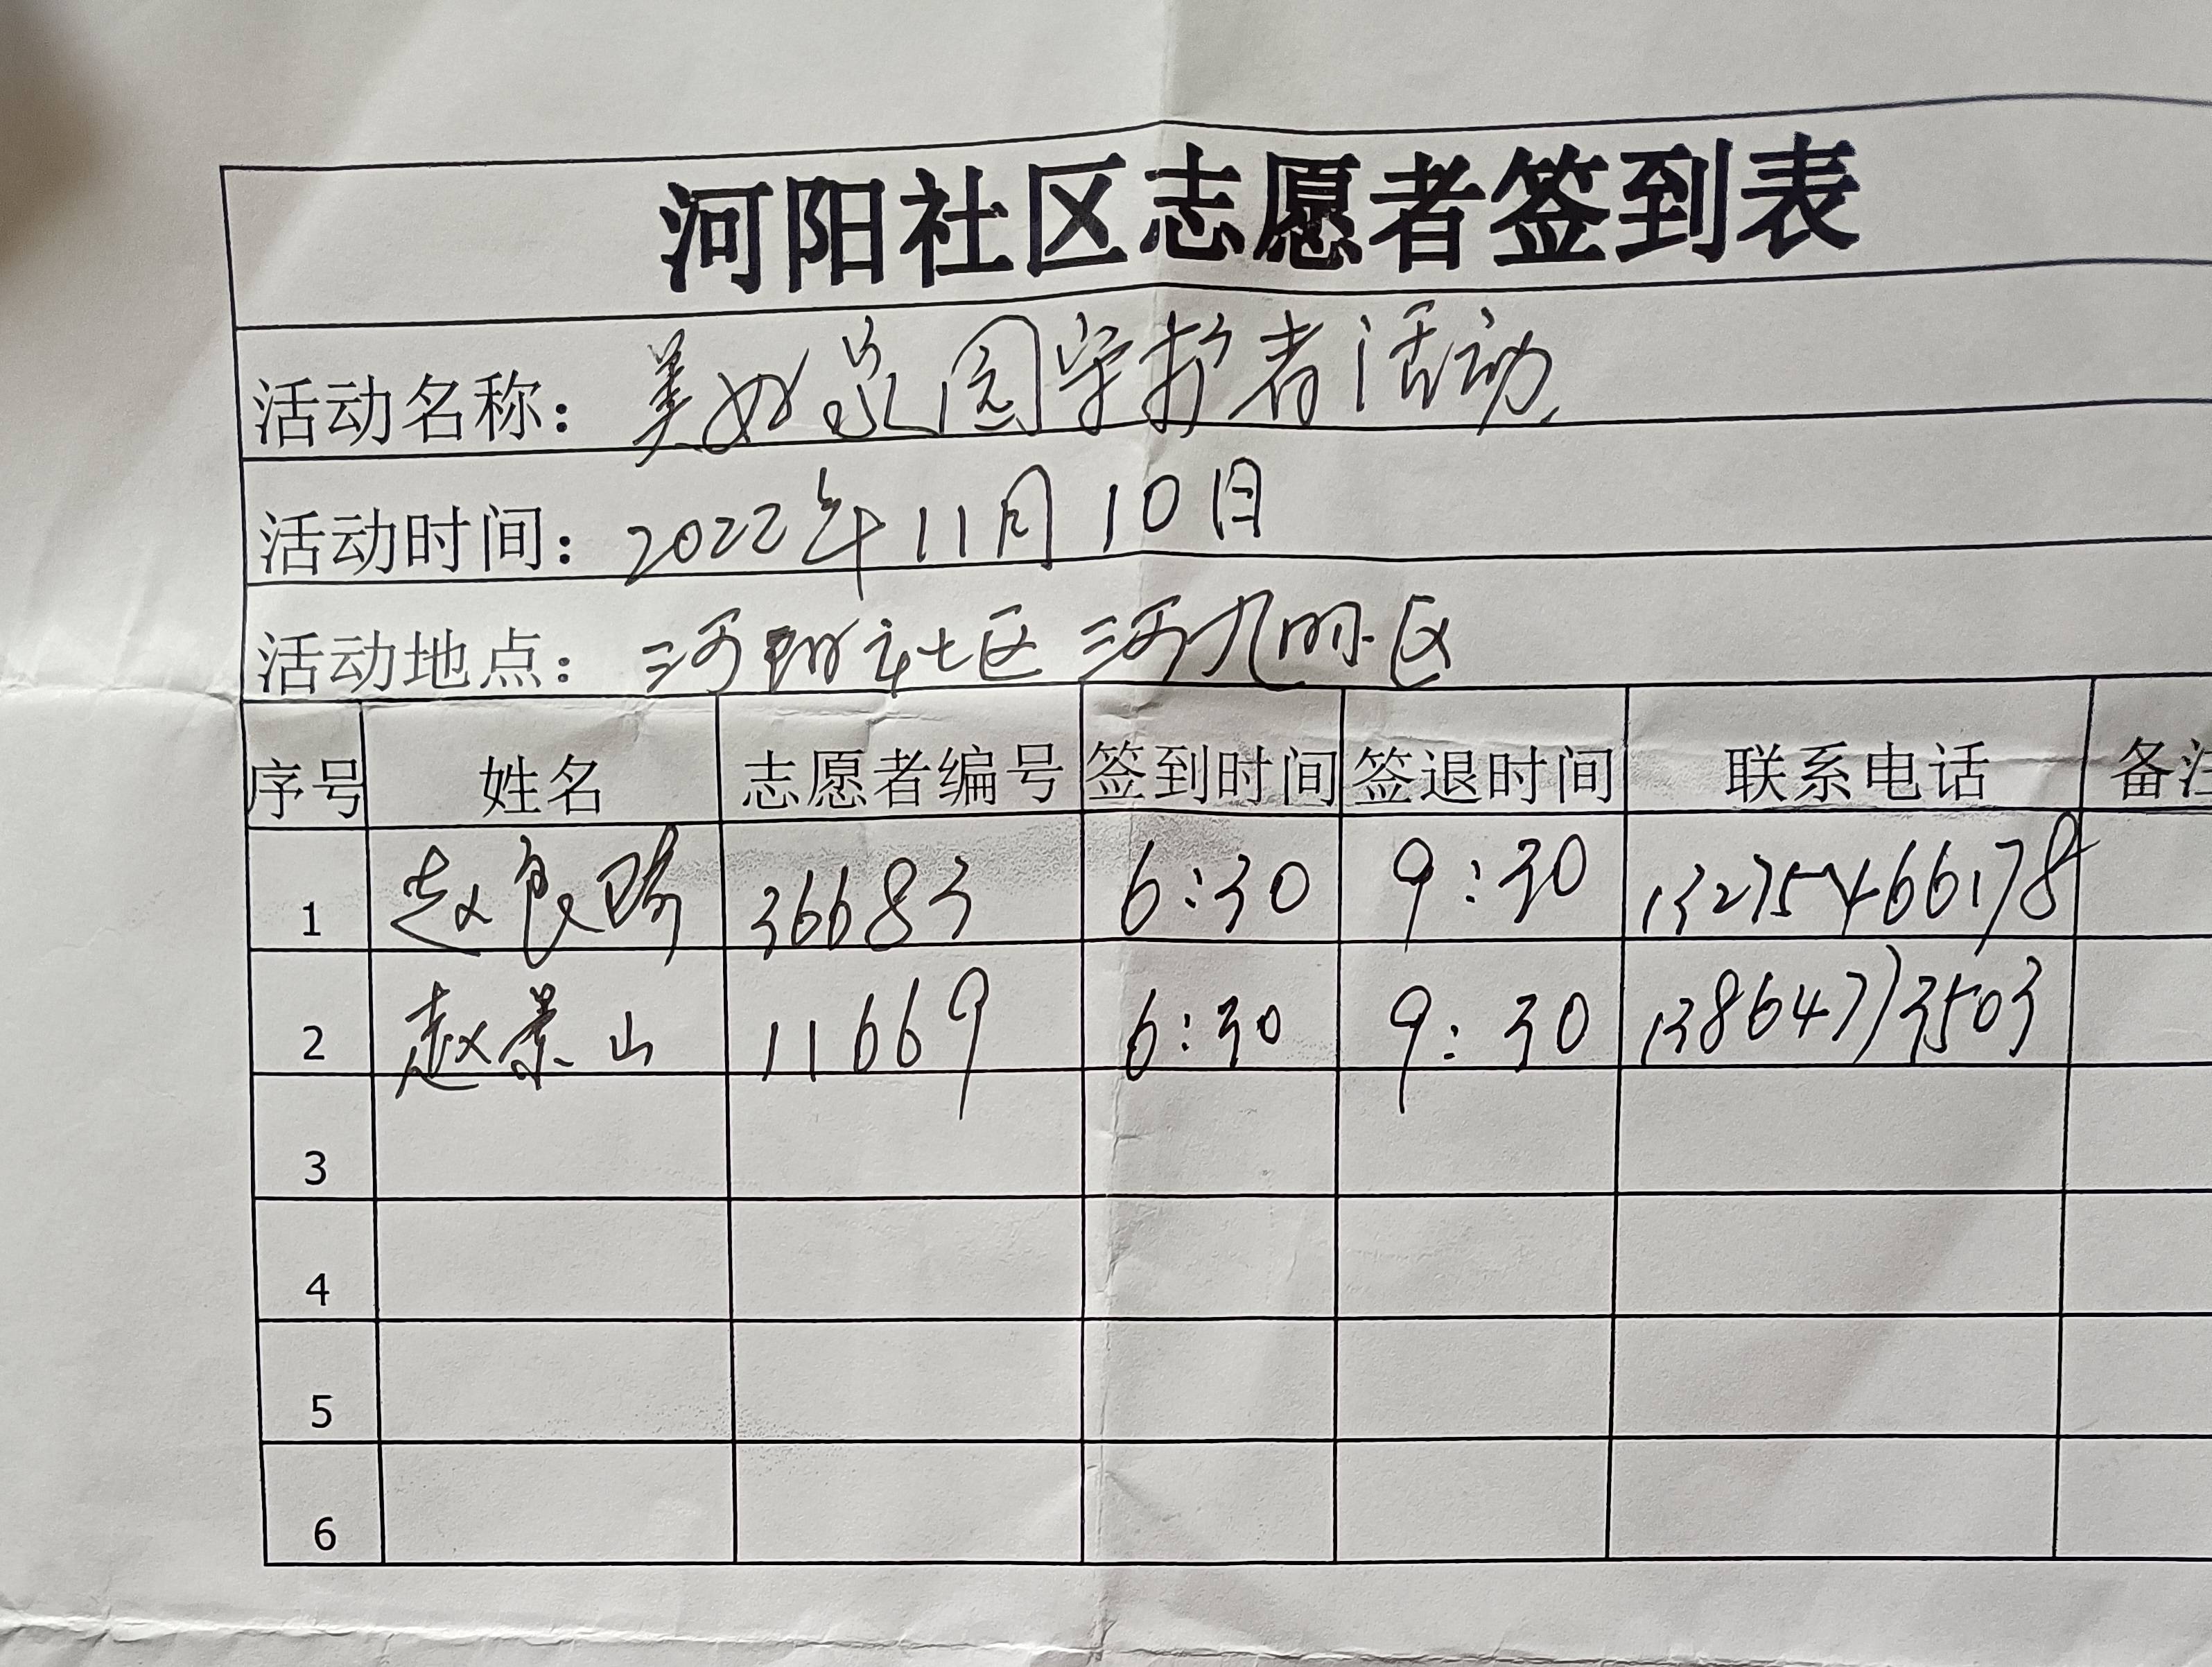 河阳社区志愿者签到表
活动名称：美好家园守护者活动
活动时间：2022年11月10日
活动地点：河阳社区河九网区
序号 姓名 志愿者编号 签到时间 签退时间 联系电话 备注
1 赵良 36683 6:30 9:30 13275466178
2 赵景山 11669 6:30 9:30 13864773503
3
4
5
6